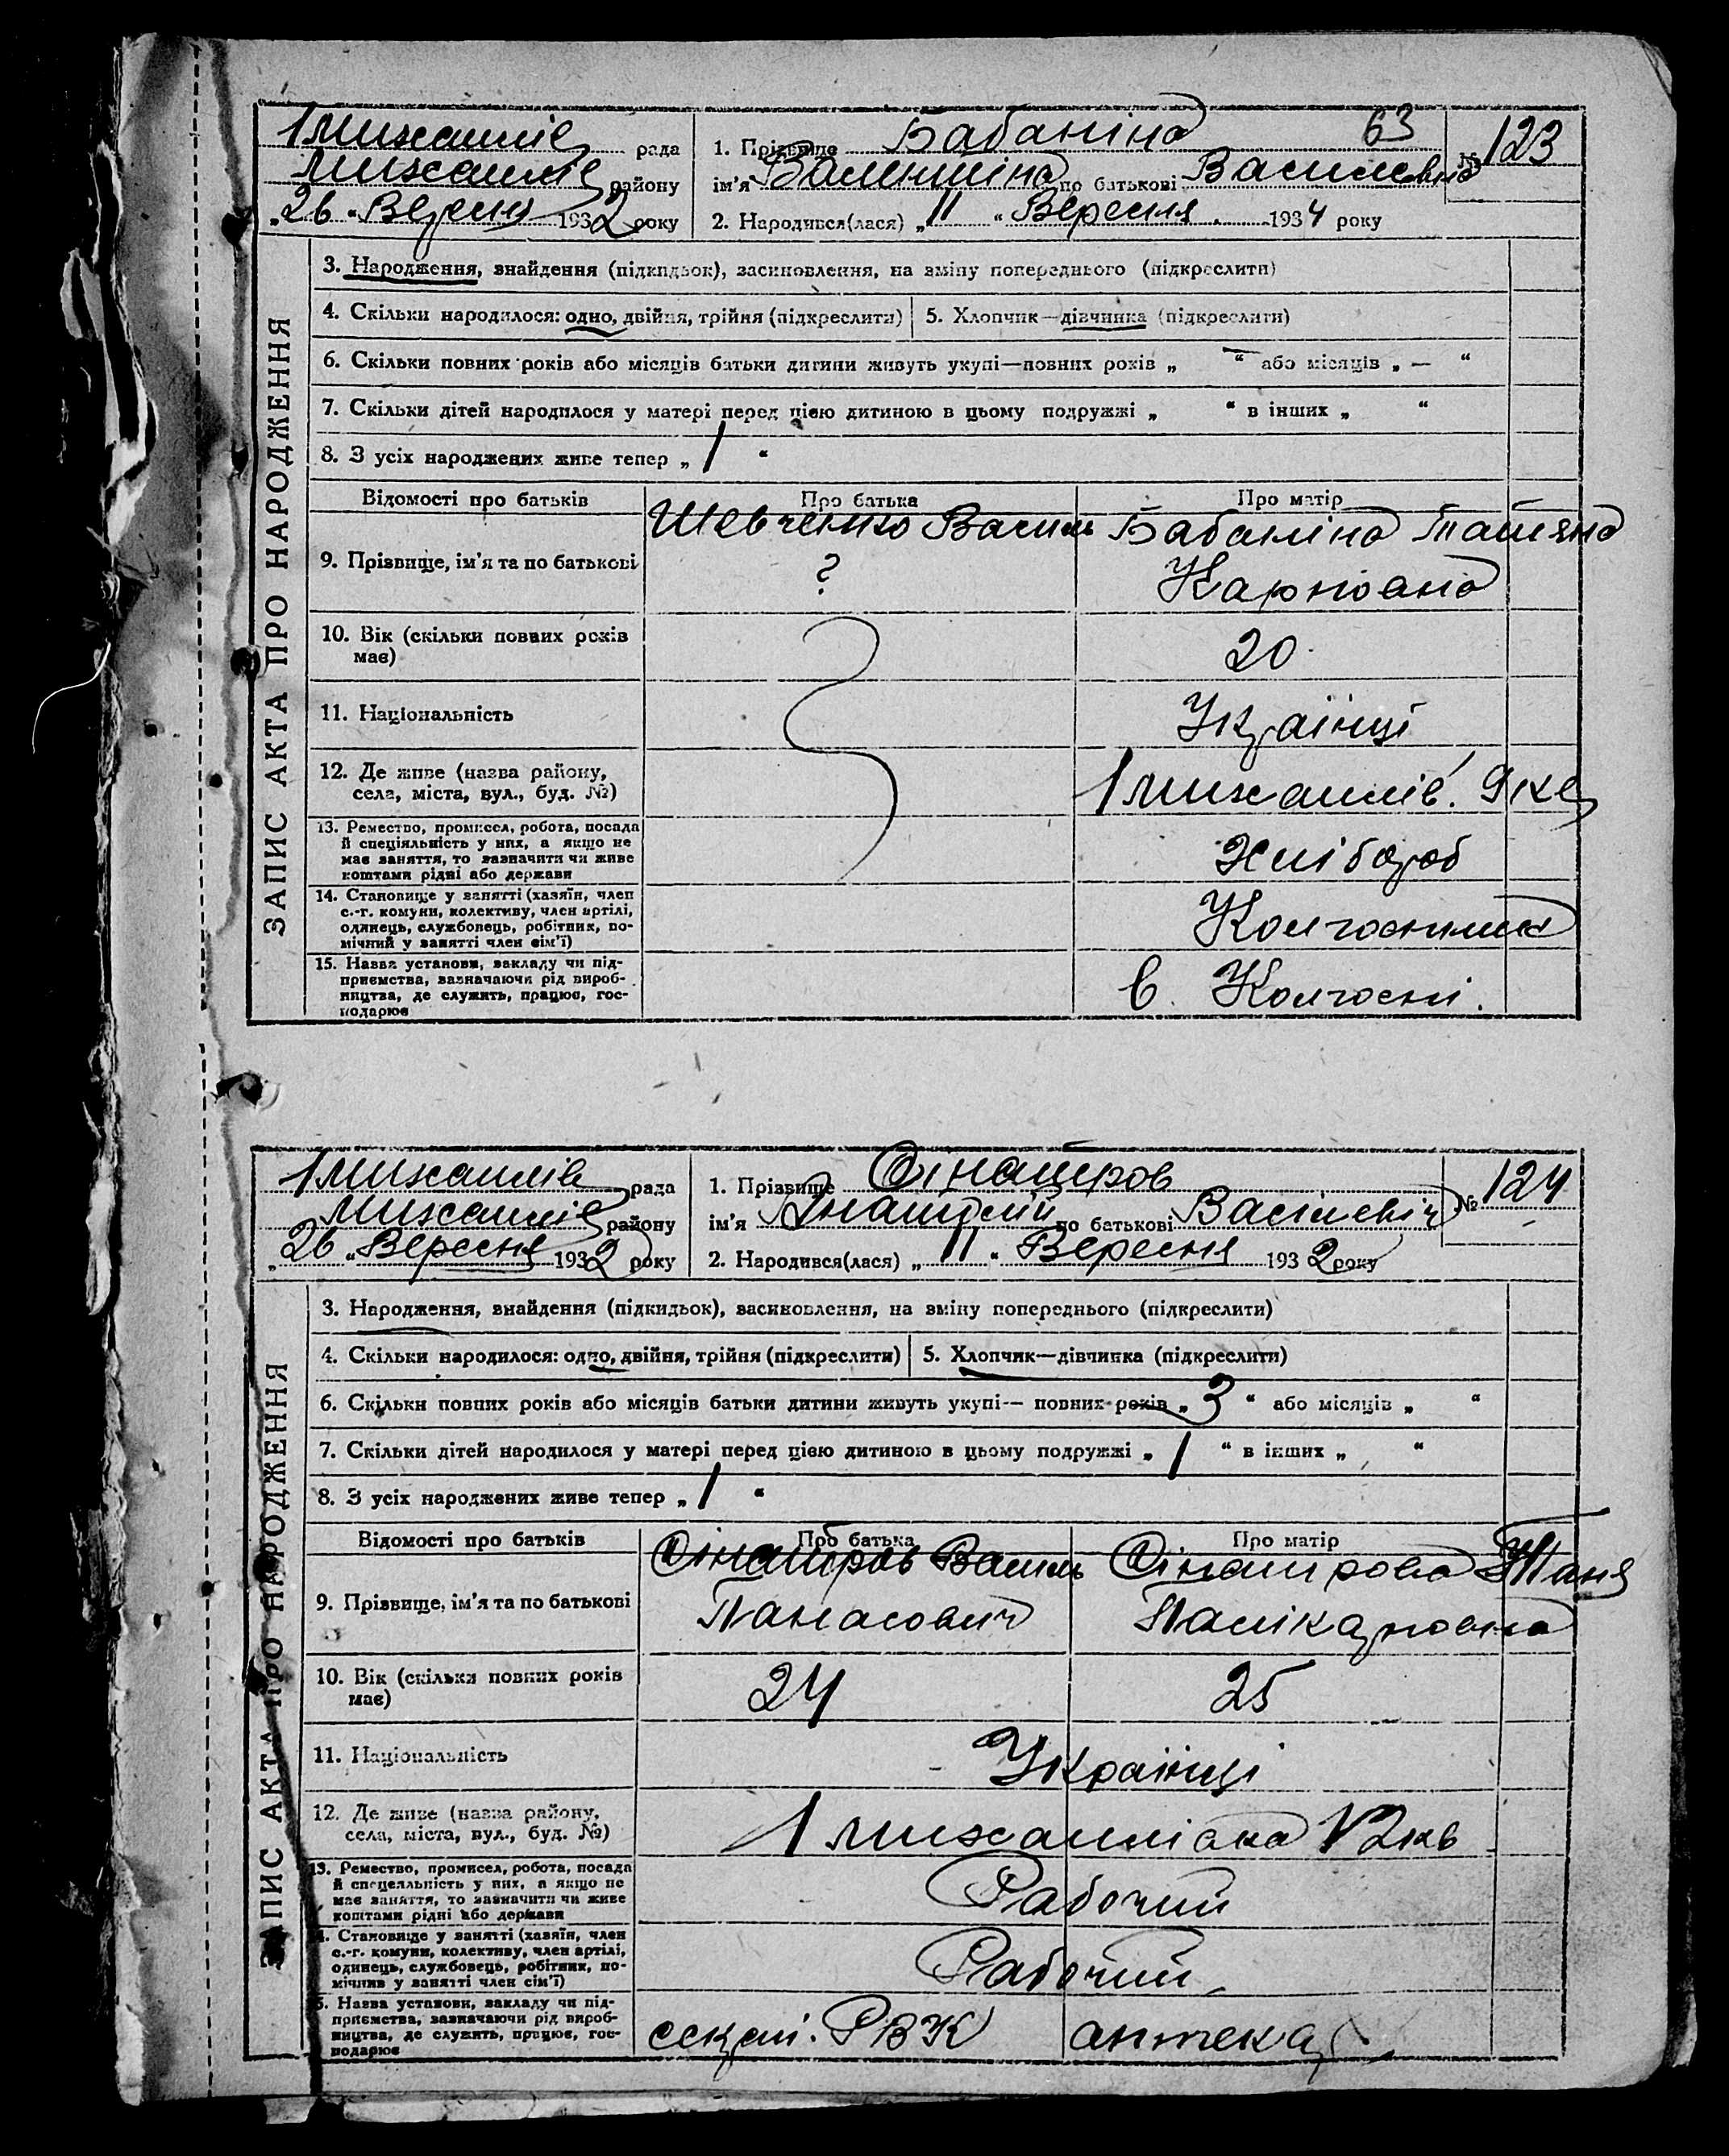 ЗАПИС АКТА ПРО НАРОДЖЕННЯ
1 Михайлів рада
Михайлів району
„26 “ Вересня 1932 року
1. Прізвище Бабаніна 63
ім'я Валентіна по батькові Василевна
№ 123
2. Народився(лася) „ 11 “ Вересня 1934 року
3. Народження, знайдення (підкидьок), засиновлення, на зміну попереднього (підкреслити)
4. Скільки народилося: одно, двійня, трійня (підкреслити) 5. Хлопчик—дівчинка (підкреслити)
6. Скільки повних років або місяців батьки дитини живуть укупі—повних років „ — “ або місяців „ — “
7. Скільки дітей народилося у матері перед цією дитиною в цьому подружжі „ “ в інших „ “
8. З усіх народжених живе тепер „ 1 “
Відомості про батьків Про батька Про матір
9. Прізвище, ім'я та по батькові
Шевченко Василь
?
Бабаніна Татяна
Карповна
10. Вік (скільки повних років
має)
20
11. Національність
Українці
12. Де живе (назва району,
села, міста, вул., буд. №)
1 Михайлів. 9 кв
13. Ремество, промисел, робота, посада
й спеціяльність у них, а якщо не
має заняття, то зазначити чи живе
коштами рідні або держави
Хлібороб
14. Становище у занятті (хазяїн, член
с.-г. комуни, колективу, член артілі,
одинець, службовець, робітник, по-
мічний у занятті член сім'ї)
Колгоспник
15. Назва установи, закладу чи під-
приємства, зазначаючи рід вироб-
ництва, де служить, працює, гос-
подарює
в. Колгоспі.
ЗАПИС АКТА ПРО НАРОДЖЕННЯ
1 Михайлів рада
Михайлів району
„26 “ Вересня 1932 року
1. Прізвище
ім'я Анатолій по батькові Васілевіч
№ 124
2. Народився(лася) „ 11 “ Вересня 1932 року
3. Народження, знайдення (підкидьок), засиновлення, на зміну попереднього (підкреслити)
4. Скільки народилося: одно, двійня, трійня (підкреслити) 5. Хлопчик—дівчинка (підкреслити)
6. Скільки повних років або місяців батьки дитини живуть укупі— повних років „ 3 “ або місяців „ “
7. Скільки дітей народилося у матері перед цією дитиною в цьому подружжі „ 1 “ в інших „ “
8. З усіх народжених живе тепер „ 1 “
Відомості про батьків Про батька Про матір
9. Прізвище, ім'я та по батькові
Василь
Панасович
Таня
Палікарповна
10. Вік (скільки повних років
має)
24 25
11. Національність
Українці
12. Де живе (назва району,
села, міста, вул., буд. №)
1 Михайлівка 12 кв
13. Ремество, промисел, робота, посада
й спеціяльність у них, а якщо не
має заняття, то зазначити чи живе
коштами рідні або держави
Рабочий
14. Становище у занятті (хазяїн, член
с.-г. комуни, колективу, член артілі,
одинець, службовець, робітник, по-
мічний у занятті член сім'ї)
Рабочий
15. Назва установи, закладу чи під-
приємства, зазначаючи рід вироб-
ництва, де служить, працює, гос-
подарює
РВК аптека